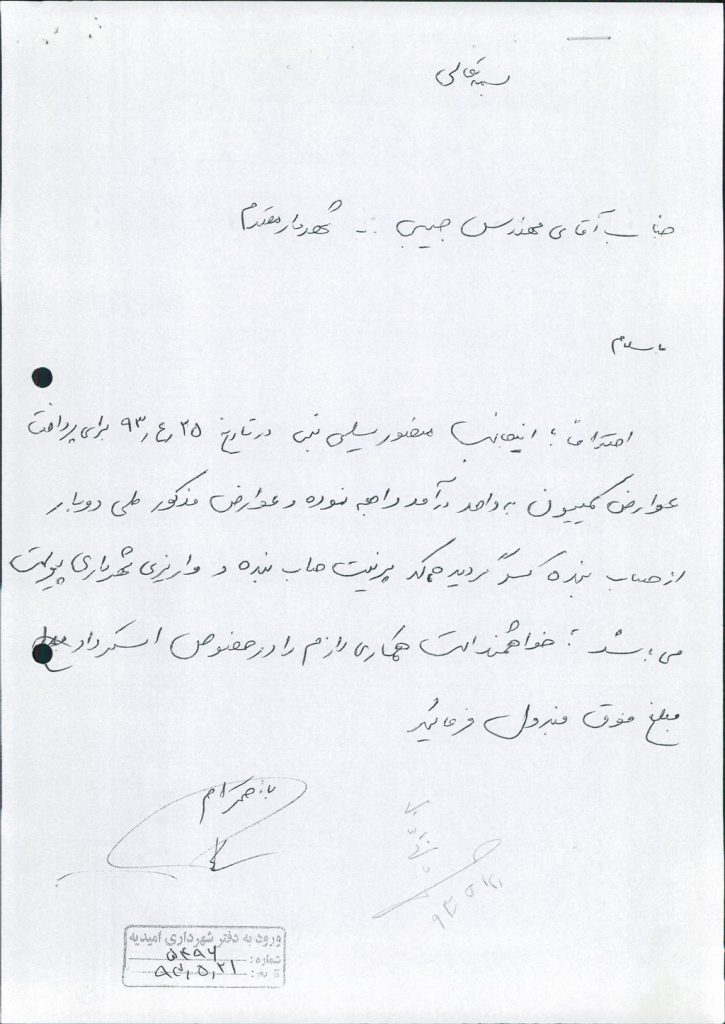 بسمه تعالی
جناب آقای مهندس حبیبی .. شهردار محترم
با سلام
احتراماً ؛ اینجانب منصور سلیمی در تاریخ ۹۳٫۴٫۲۵ برای پرداخت
عوارض کمیسیون به واحد درآمد مراجعه نموده و عوارض مذکور طی دوبار
از حساب بنده کسر گردید همکد پرینت حساب بنده و واریزی شهرداری پیوست
می باشد ؛ خواهشمند است همکاری لازم را در خصوص استرداد
مبلغ فوق مبذول فرمائید
با تشکر
ورود به دفتر شهرداری امیدیه
شماره: ۵۴۹۶